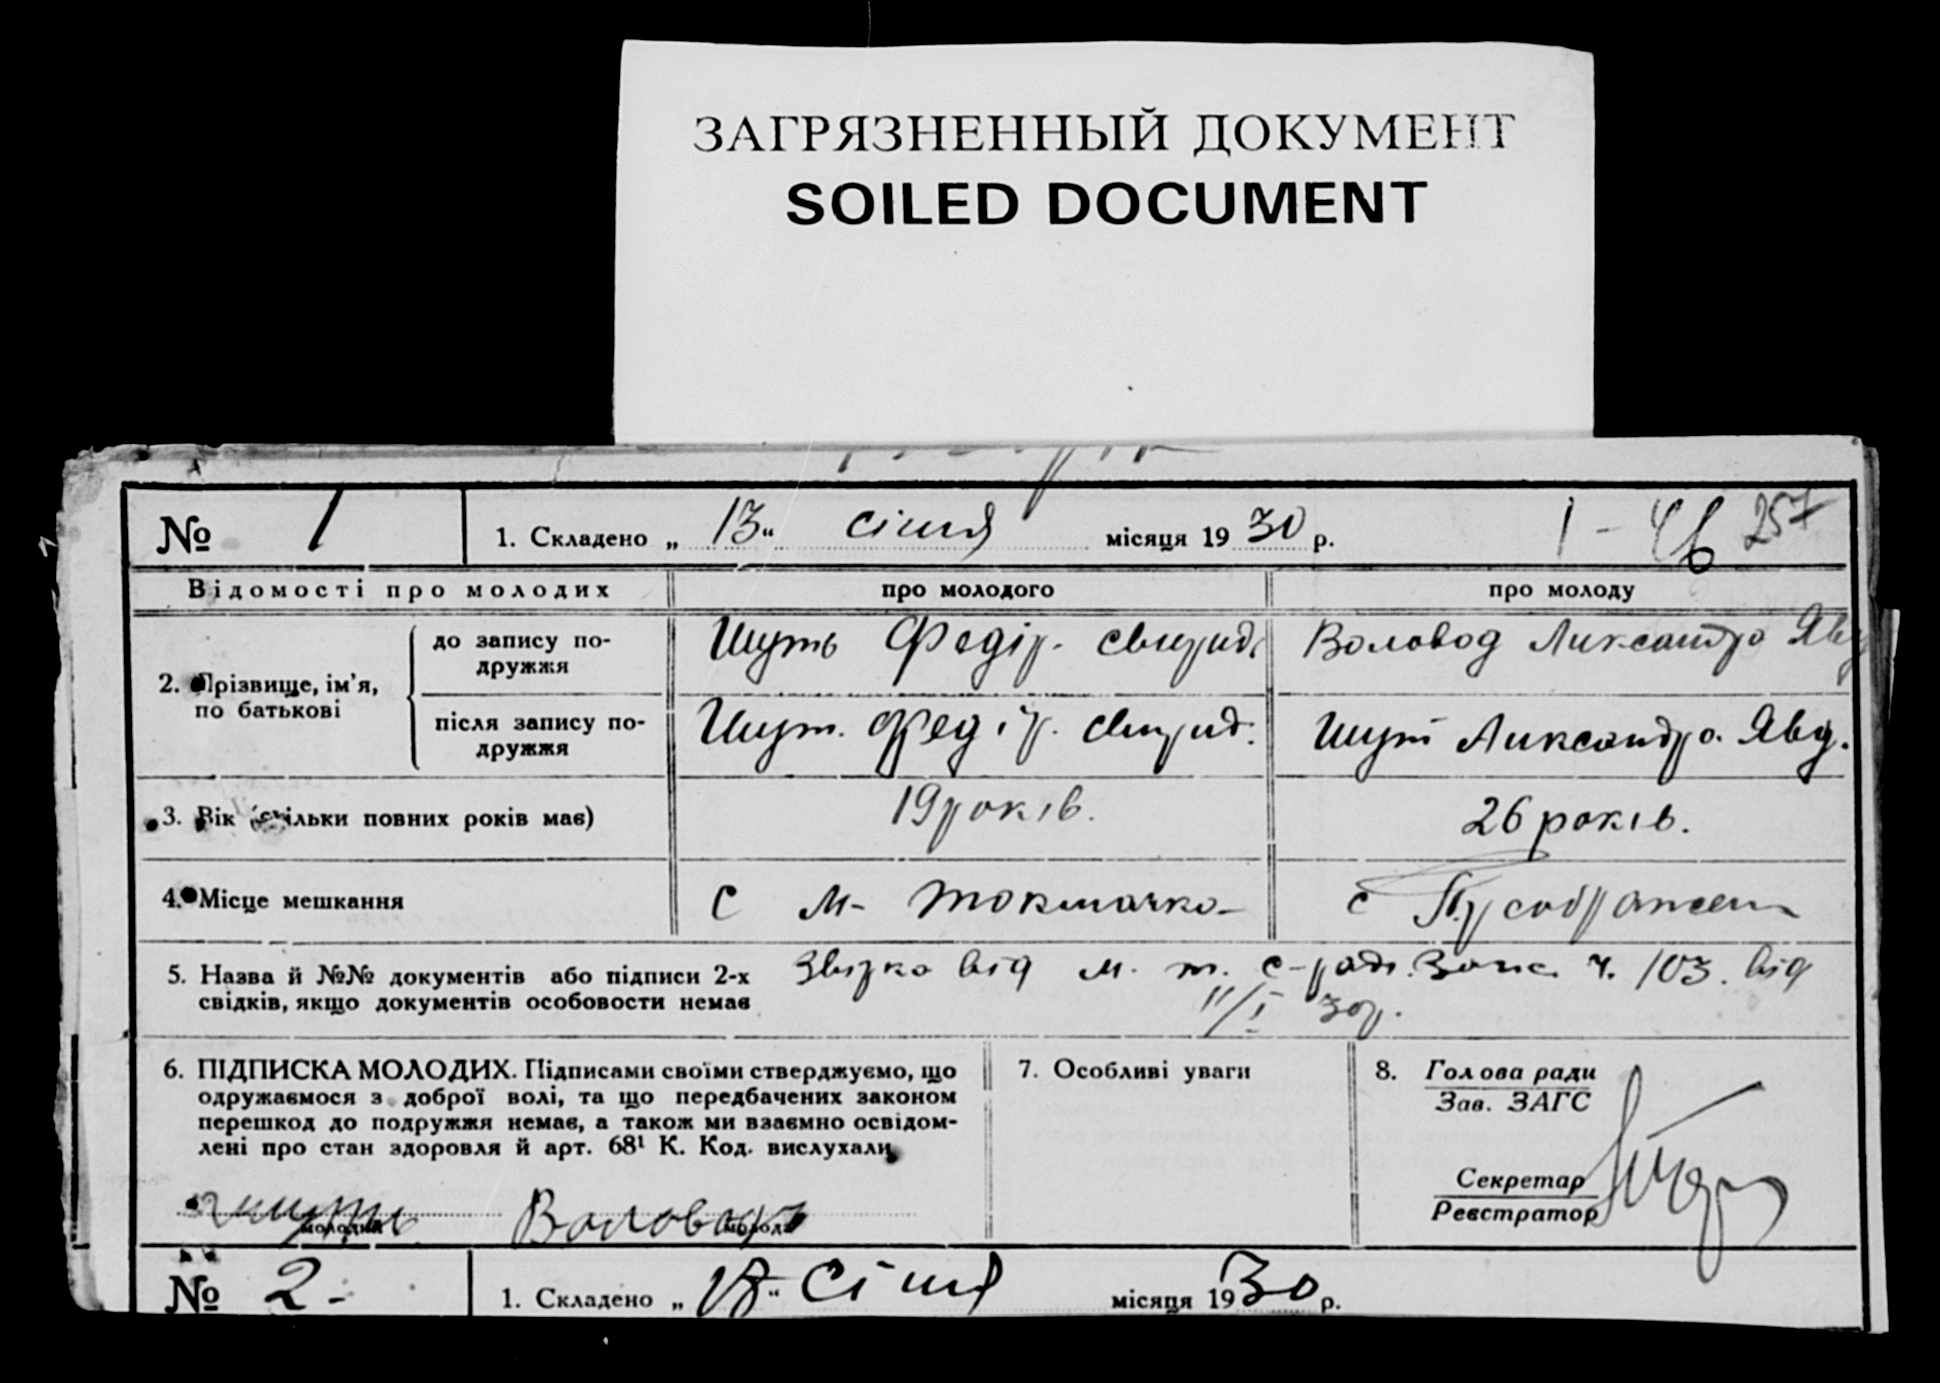 ЗАГРЯЗНЕННЫЙ ДОКУМЕНТ
SOILED DOCUMENT
№ 1
1. Складено „ 13 “ січня місяця 19 30 р.
257
Відомості про молодих
про молодого
про молоду
2. Прізвище, ім’я, по батькові
до запису по-
дружжя
Шуть Федір. Свирид.
Воловод Ликсандра Явд
після запису по-
дружжя
Шут. Федір. Свирид.
Шут Ликсандра. Явд.
3. Вік (скільки повних років має)
19 років.
26 років.
4. Місце мешкання
с М- Токмачка-
с
5. Назва й №№ документів або підписи 2-х
свідків, якщо документів особовости немає
від м. т. с-ради. ч. 103. від
11/I 30р.
6. ПІДПИСКА МОЛОДИХ. Підписами своїми стверджуємо, що
одружаємося з доброї волі, та що передбачених законом
перешкод до подружжя немає, а також ми взаємно освідом-
лені про стан здоровля й арт. 68¹ К. Код. вислухали
молодий
Воловод
молода
7. Особливі уваги
8. Голова ради
Зав. ЗАГС
Секретар
Реєстратор
№ 2-
1. Складено „ “ січня місяця 19 30 р.